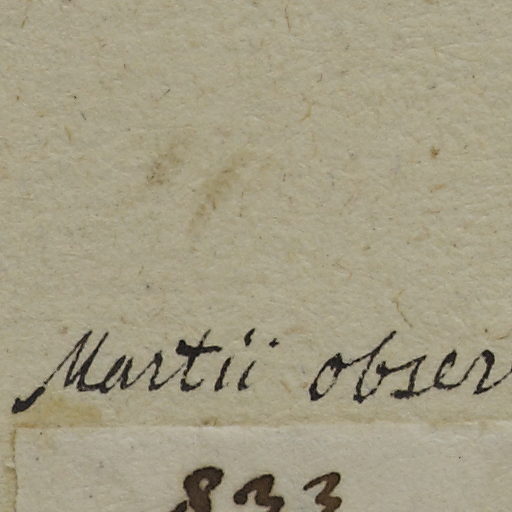 Martii obser
833